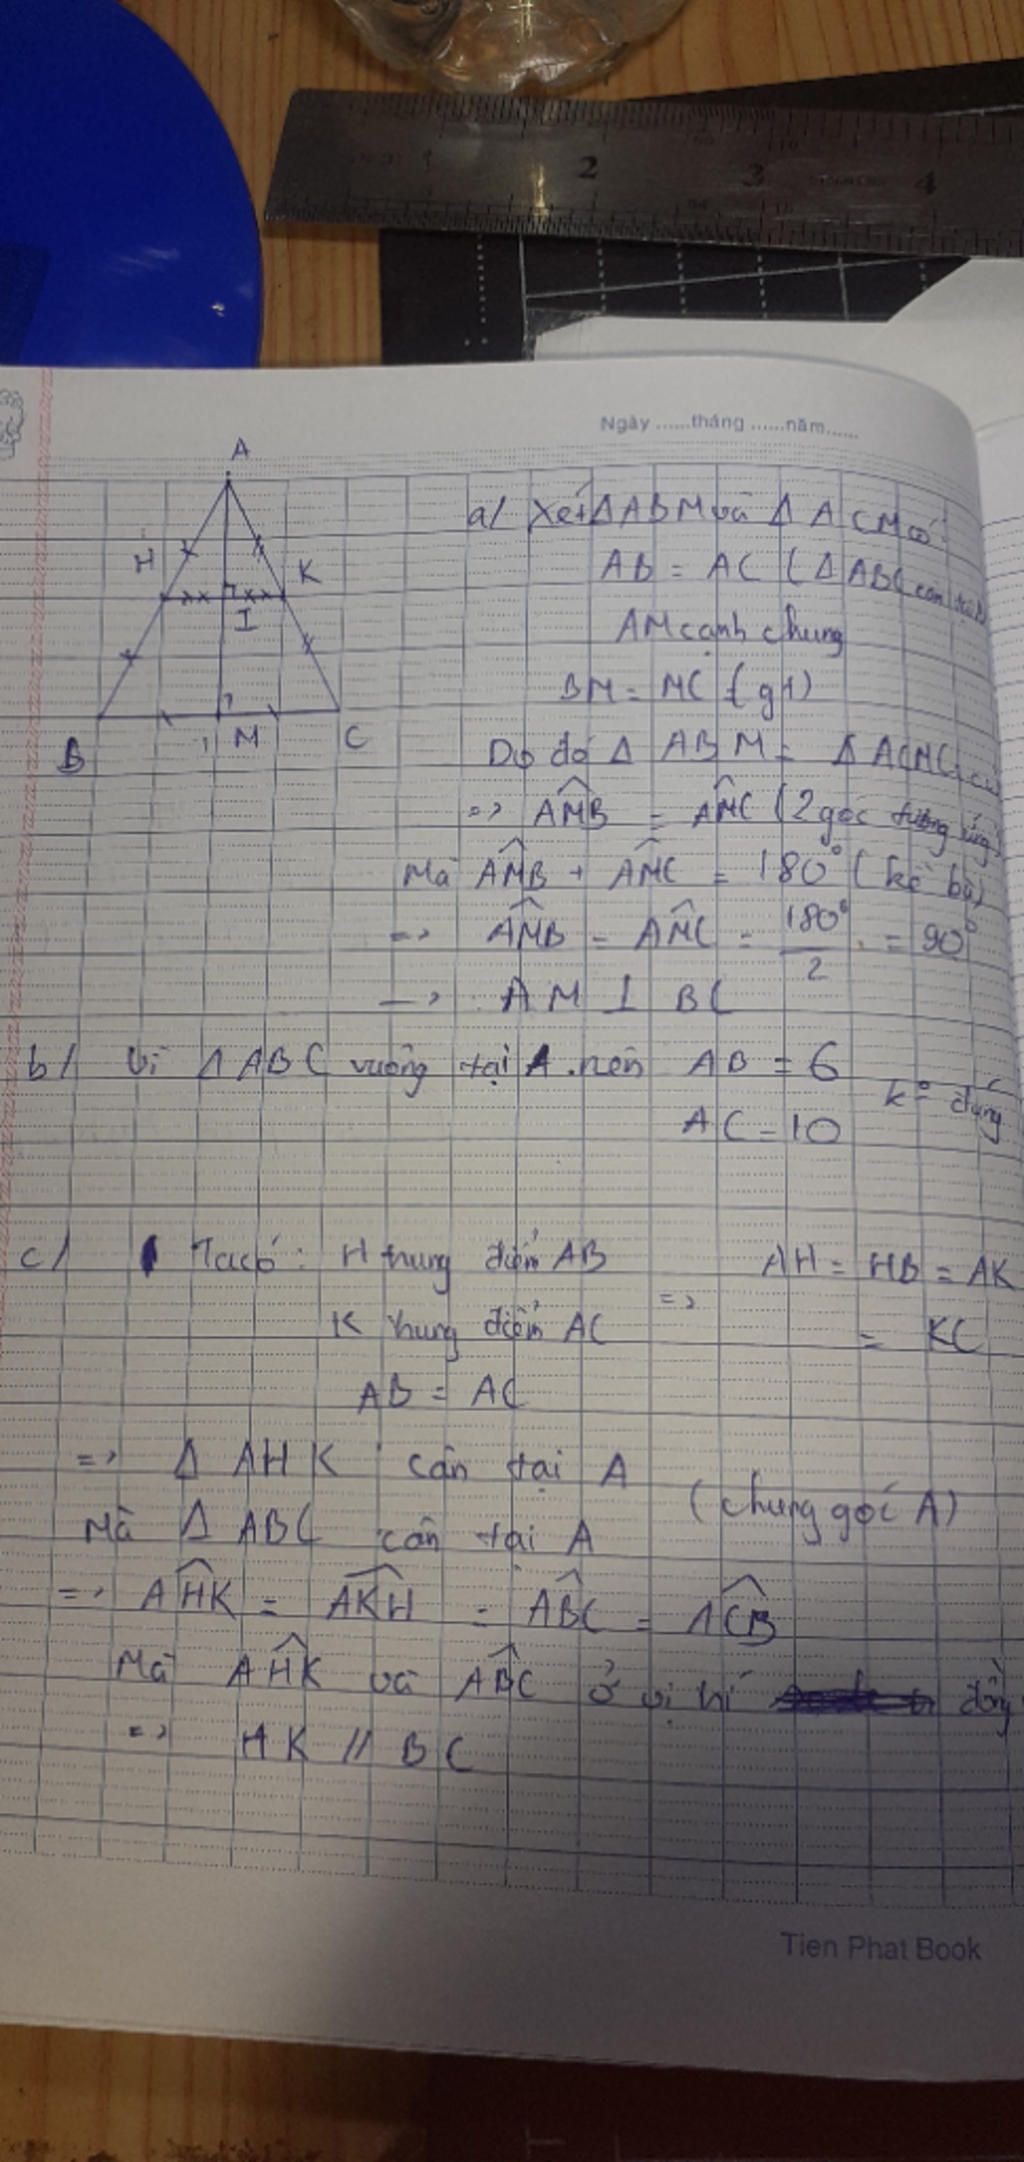 Ngày ......tháng ......năm......
A
H
K
I
B
M
C
a/ Xét Δ ABM và Δ ACM có
AB = AC (Δ ABC cân tại A
AM cạnh chung
BM = MC (gt)
Do đó Δ ABM = Δ ACM(
=> AMB = AMC (2 góc tương ứng)
Mà AMB + AMC = 180° (kề bù)
=> AMB = AMC = 180°/2 = 90°
=> AM ⊥ BC
b/ Vì Δ ABC vuông tại A nên AB = 6
AC = 10
k° đúng
c/ Ta có: H trung điểm AB
K trung điểm AC
AB = AC
=> AH = HB = AK
= KC
=> Δ AHK cân tại A
Mà Δ ABC cân tại A
(chung góc A)
=> AHK = AKH = ABC = ACB
Mà AHK và ABC ở vị trí đồng
=> HK // BC
Tien Phat Book
1 2 3 4